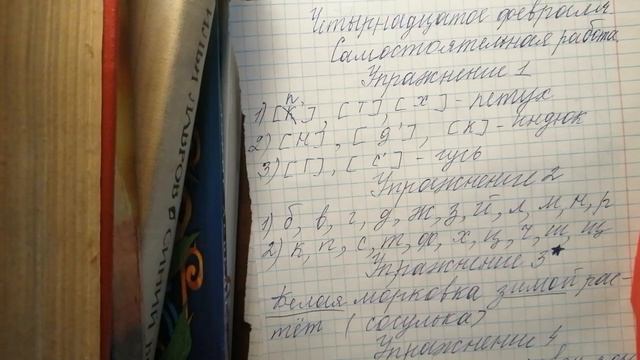 Четырнадцатое февраля
Самостоятельная работа
Упражнение 1
1) [п'], [т], [х] - петух
2) [н], [д'], [к] - индюк
3) [г], [с'] - гусь
Упражнение 2
1) б, в, г, д, ж, з, й, л, м, н, р
2) к, п, с, т, ф, х, ц, ч, ш, щ
Упражнение 3*
Белая морковка зимой рас-
тёт (сосулька)
Упражнение 4